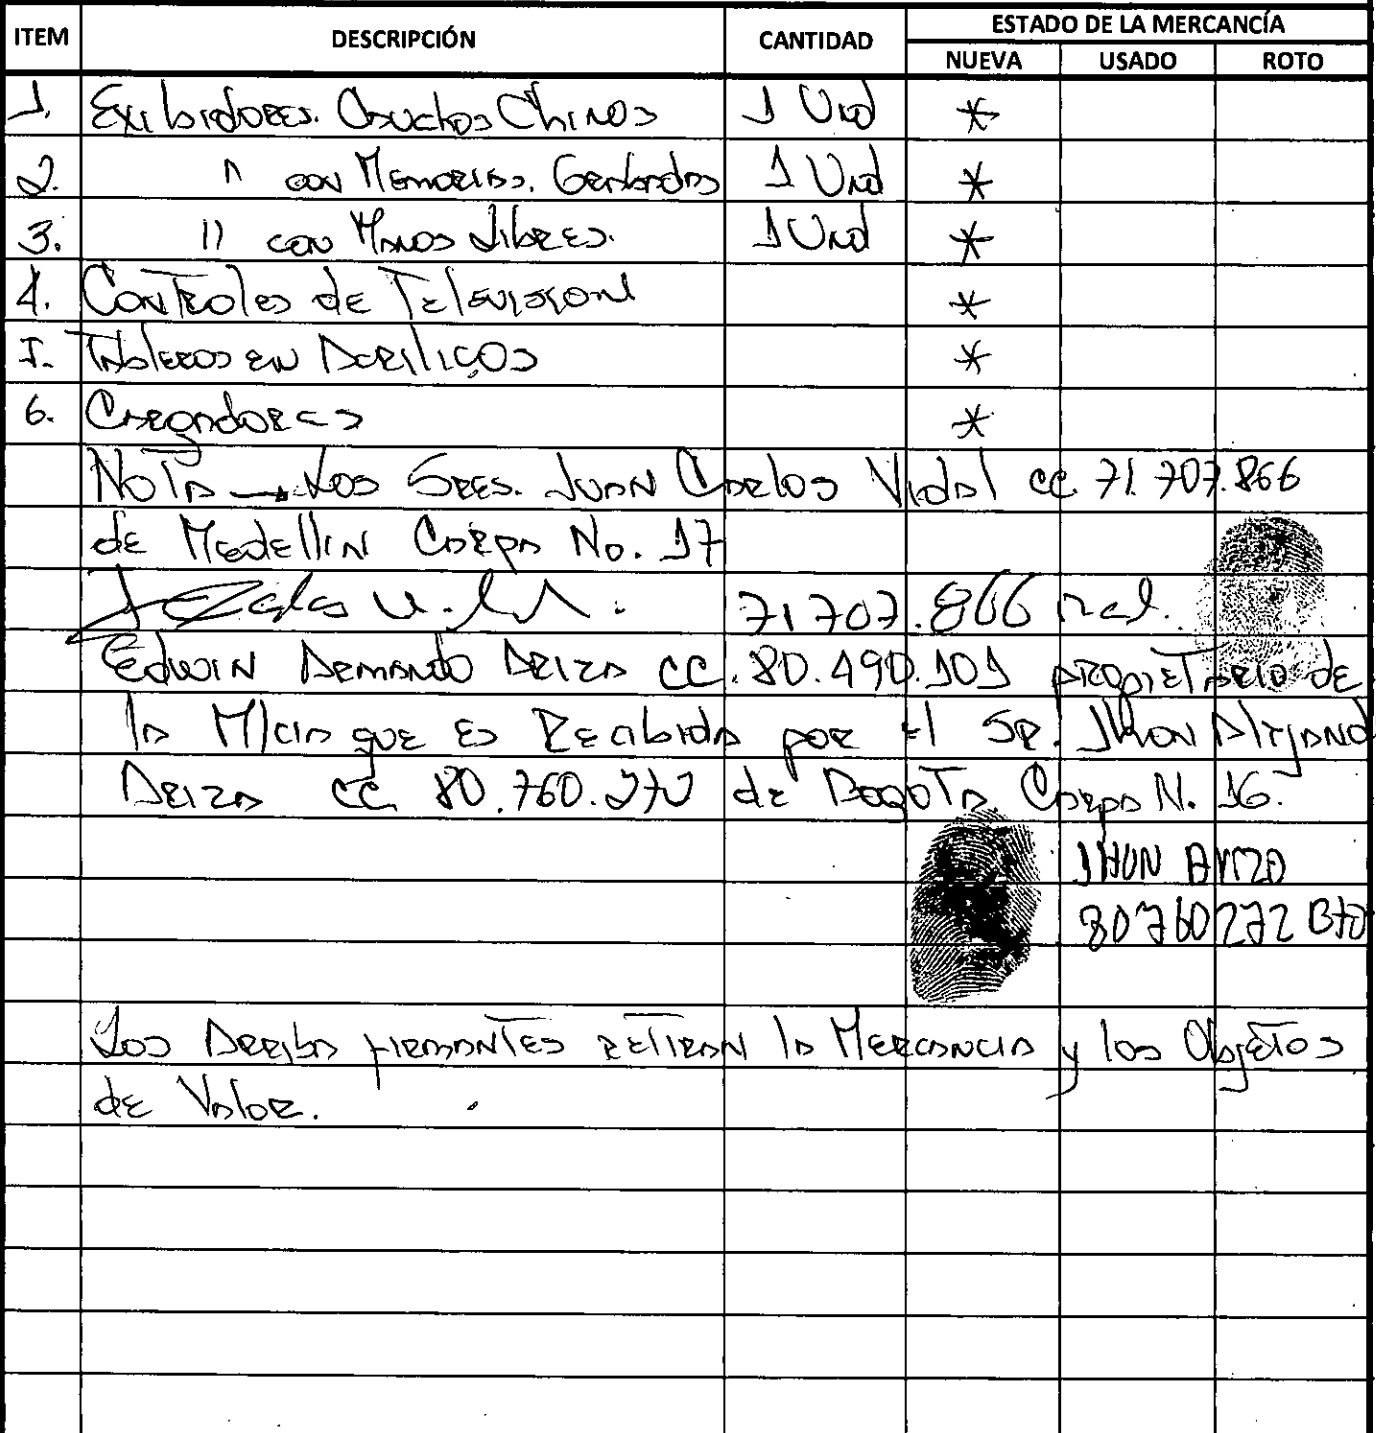 ITEM DESCRIPCIÓN CANTIDAD ESTADO DE LA MERCANCÍA
NUEVA USADO ROTO
1. Exibidores. Chinos 1 Und *
2. " con Memorias. Grabadas 1 Und *
3. " con Manos Libres. 1 Und *
4. Controles de Television *
5. Tableros en Acrilicos *
6. Cargadores *
Nota → Los Sres. Juan Carlos Vidal cc. 71.707.866
de Medellin Carpa No. 17
71707.866 Med.
Edwin Armando Ariza cc. 80.490.101 propietario de
la M/cia que es Recibida por el Sr. Jhon Alejand
Ariza cc. 80.760.272 de Bogota Carpa N. 16.
JHON ARIZA
80760272 Bta
Los Arriba firmantes retiran la Mercancia y los Objetos
de Valor.